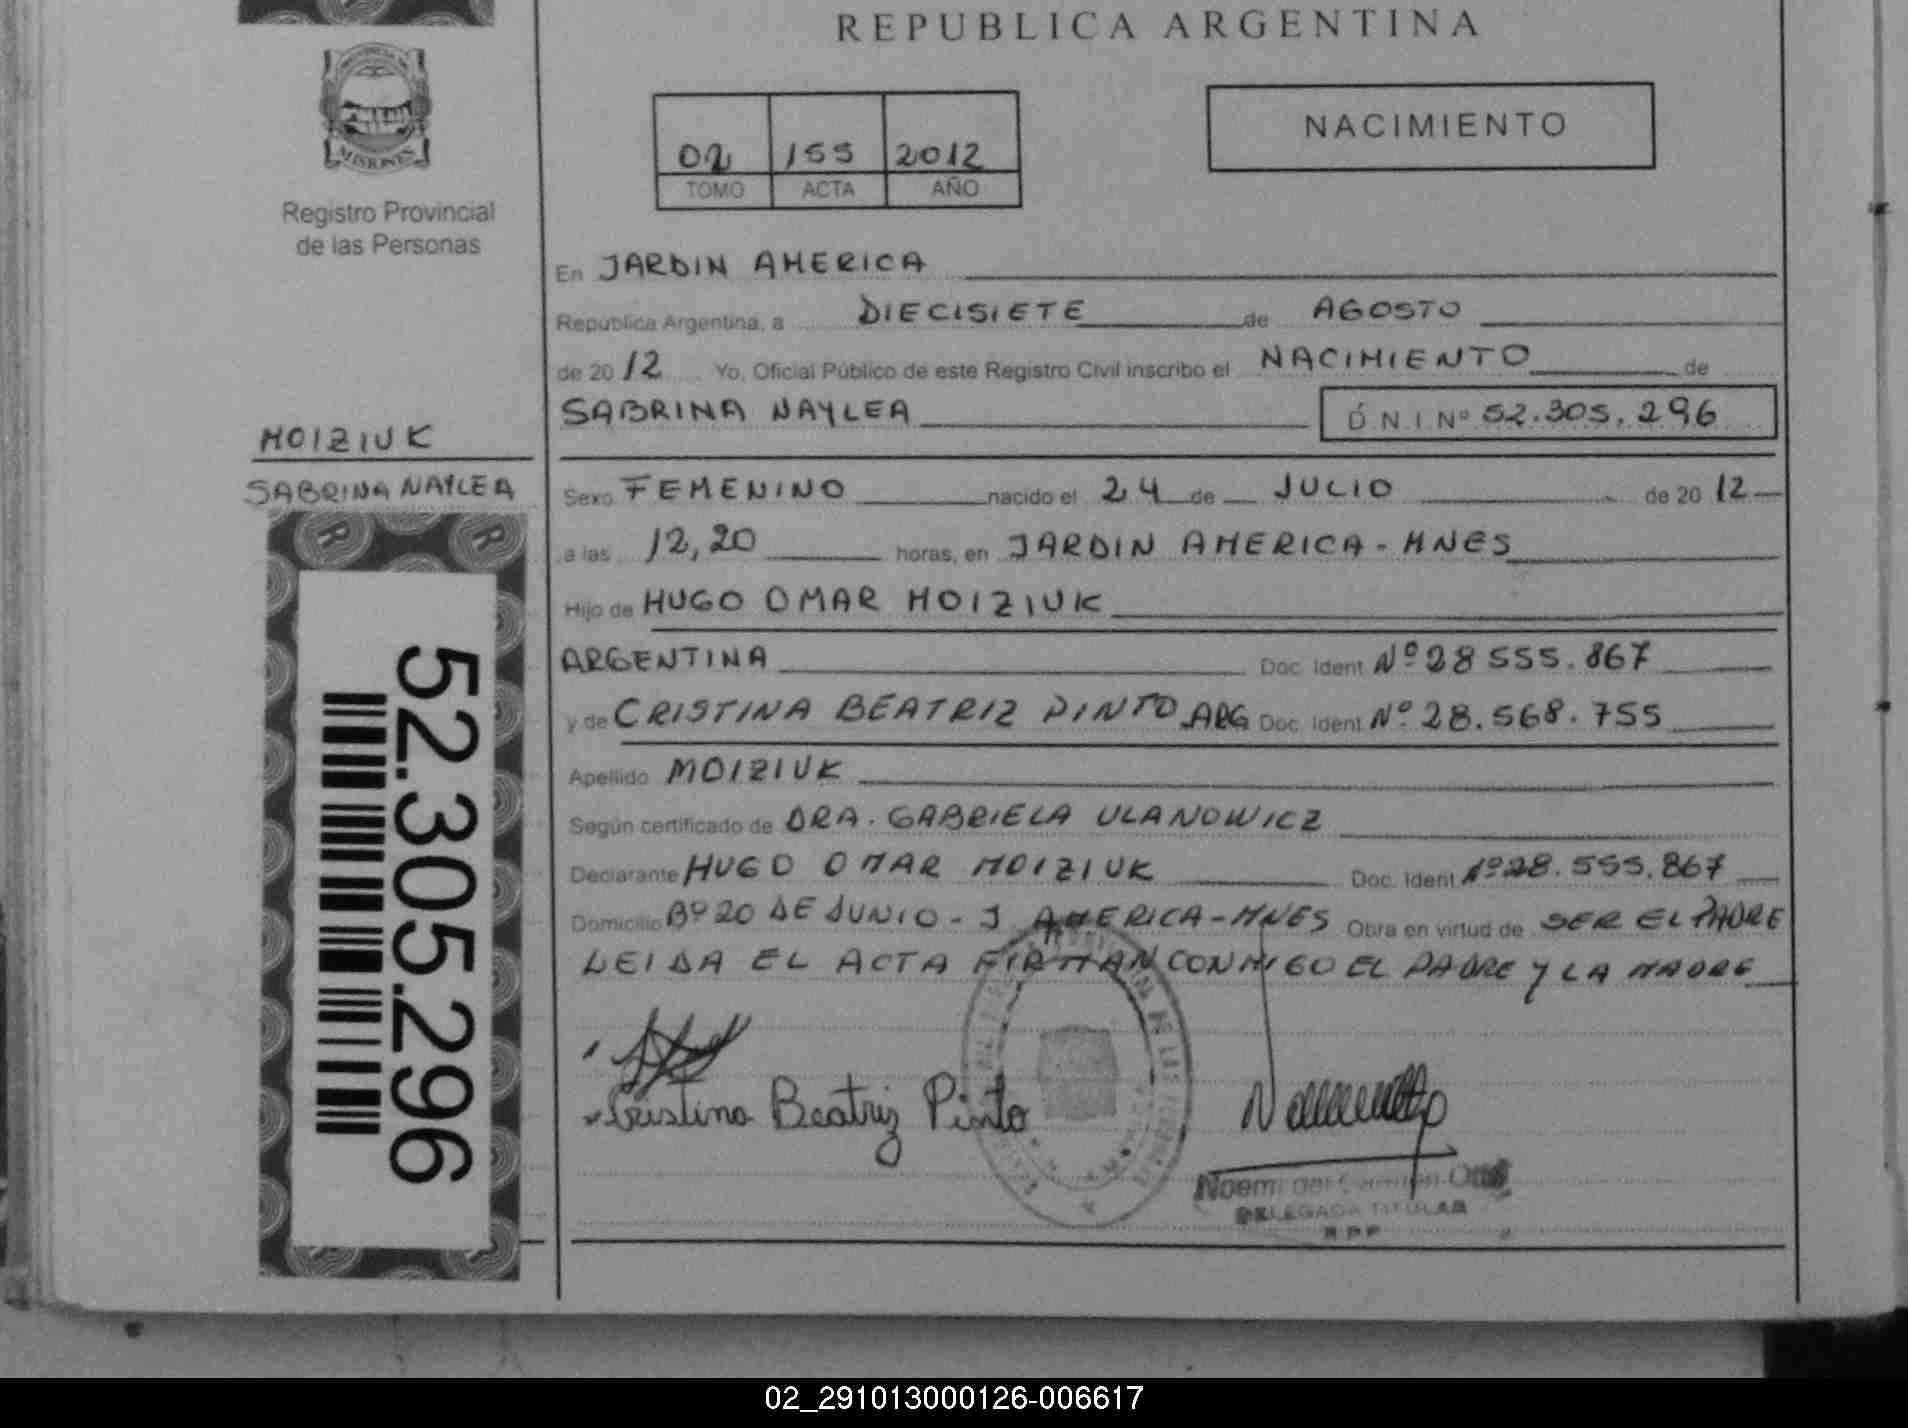 REPUBLICA ARGENTINA
MISIONES
Registro Provincial
de las Personas
02 155 2012
TOMO ACTA AÑO
NACIMIENTO
En JARDIN AMERICA
República Argentina, a DIECISIETE de AGOSTO
de 2012 Yo, Oficial Público de este Registro Civil inscribo el NACIMIENTO de
SABRINA NAYLEA D.N.I Nº 52.305.296
MOIZIUK
SABRINA NAYLEA
Sexo FEMENINO nacido el 24 de JULIO de 2012
a las 12,20 horas, en JARDIN AMERICA - MNES
Hijo de HUGO OMAR MOIZIUK
ARGENTINA Doc. Ident. Nº 28 555.867
y de CRISTINA BEATRIZ PINTO ARG Doc. Ident. Nº 28.568.755
Apellido MOIZIUK
Según certificado de DRA. GABRIELA ULANOWICZ
Declarante HUGO OMAR MOIZIUK Doc. Ident. Nº 28.555.867
Domicilio Bº 20 DE JUNIO - J. AMERICA - MNES Obra en virtud de SER EL PADRE
LEIDA EL ACTA FIRMAN CONMIGO EL PADRE Y LA MADRE
Cristina Beatriz Pinto
Noemi del Carmen
DELEGADA TITULAR
RPP
52.305.296
02_291013000126-006617